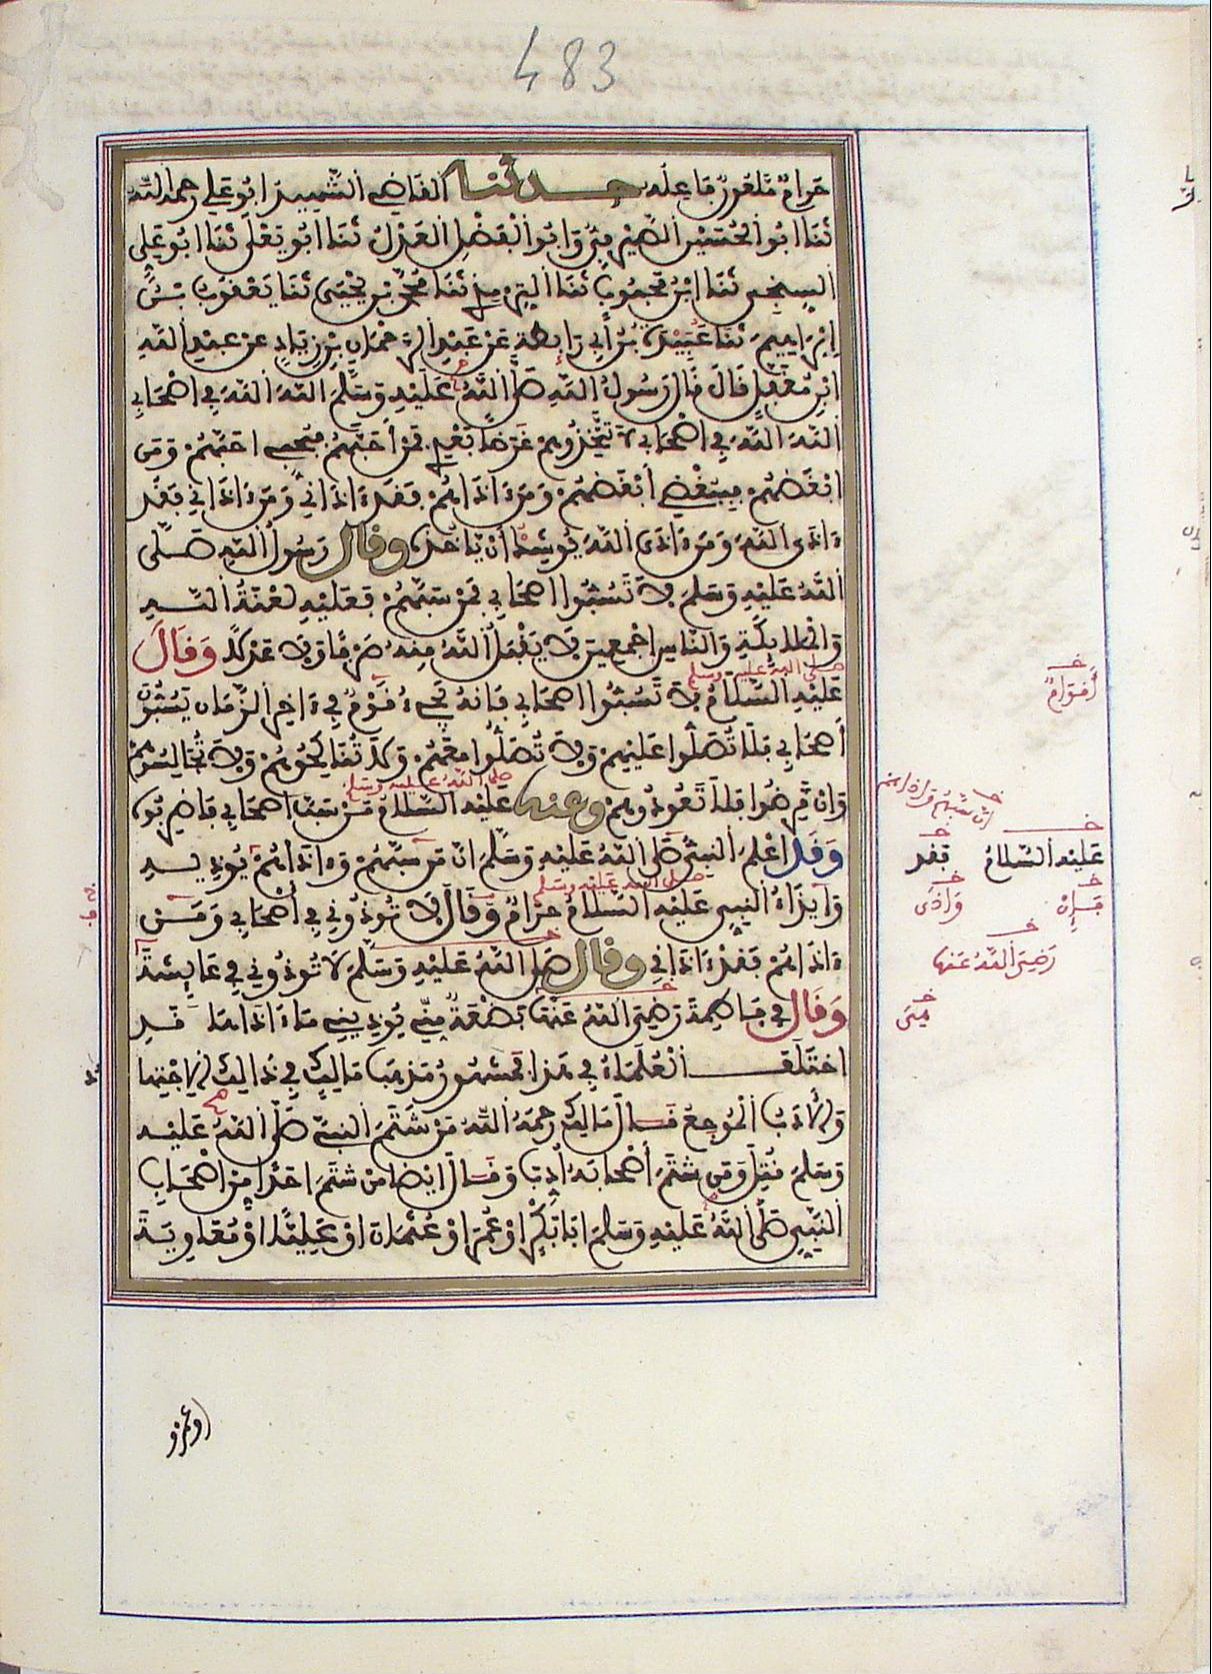 483
حَرَامٌ مَلْعُونٌ فَاعِلُهُ حدثنا الْقَاضِي الشَّهِيدُ أَبُو عَلِي رحمه اللّه
ثَنَا أَبُو الْحُسَيْنِ الصَّيْرَفِيُّ وَأَبُو الْفَضْلِ الْعَدْلُ ثَنَا أَبُو يَعْلَى ثَنَا أَبُو عَلِي
السِّنْجِي ثَنَا ابْنُ مَحْبُوبٍ ثَنَا التِّرْمِذِي ثَنَا مُحَمَّدُ بْنُ يَحْيَى ثَنَا يَعْقُوبُ بْنُ
إِبْرَاهِيمَ ثَنَا عُبَيْدَةُ بْنُ أَبِي رَابِطَةَ عَنْ عَبْدِ الرَّحْمَانِ بْنِ زِيَادٍ عَنْ عَبْدِ اللَّهِ
ابْنِ مُغَفَّلٍ قَالَ قَالَ رَسُولُ اللَّهِ صَلَّى اللَّهُ عَلَيْهِ وَسَلَّمَ اللَّهَ اللَّهَ فِي أَصْحَابِي
اللَّهَ اللَّهَ فِي أَصْحَابِي لَا تَتَّخِذُوهُمْ غَرَضًا بَعْدِي فَمَنْ أَحَبَّهُمْ فَبِحُبِّي أَحَبَّهُمْ وَمَن
أَبْغَضَهُمْ فَبِبُغْضِي أَبْغَضَهُمْ وَمَنْ ءَاذَاهُمْ فَقَدْ ءَاذَانِي وَمَنْ ءَاذَانِي فَقَدْ
ءَاذَى اللَّهَ وَمَنْ ءَاذَى اللَّهَ يُوشِكُ أَنْ يَأْخُذَهُ وقال رَسُولُ اللَّهِ صَلَّى
اللَّهُ عَلَيْهِ وَسَلَّمَ لَا تَسُبُّوا أَصْحَابِي فَمَنْ سَبَّهُمْ فَعَلَيْهِ لَعْنَةُ اللَّهِ
وَالْمَلَائِكَةِ وَالنَّاسِ أَجْمَعِينَ لَا يَقْبَلُ اللَّهُ مِنْهُ صَرْفًا وَلَا عَدْلًا وَقَالَ
صلى الله عليه وسلم
عَلَيْهِ السَّلَامُ لَا تَسُبُّوا أَصْحَابِي فَإِنَّهُ يَجِيءُ قَوْمٌ فِي ءَاخِرِ الزَّمَانِ يَسُبُّونَ
أَصْحَابِي فَلَا تُصَلُّوا عَلَيْهِمْ وَلَا تُصَلُّوا مَعَهُمْ وَلَا تُنَاكِحُوهُمْ وَلَا تُجَالِسُوهُمْ
صلى الله عليه وسلم
وَإِنْ مَرِضُوا فَلَا تَعُودُوهُمْ وعنه عَلَيْهِ السَّلَامُ مَنْ سَبَّ أَصْحَابِي فَاضْرِبُوهُ
وَقَدْ أَعْلَمَ النَّبِيُّ صَلَّى اللَّهُ عَلَيْهِ وَسَلَّمَ أَنَّ مَنْ سَبَّهُمْ وَءَاذَاهُمْ يُؤْذِيهِ
صلى الله عليه وسلم
وَإِيذَاءُ النَّبِيِّ عَلَيْهِ السَّلَامُ حَرَامٌ وَقَالَ لَا تُوذُونِي فِي أَصْحَابِي وَمَنْ
ءَاذَاهُمْ فَقَدْ ءَاذَانِي وقال صَلَّى اللَّهُ عَلَيْهِ وَسَلَّمَ لَا تُوذُونِي فِي عَائِشَةَ
وَقَالَ فِي فَاطِمَةَ رَضِيَ اللَّهُ عَنْهَا بَضْعَةٌ مِنِّي يُؤْذِينِي مَا ءَاذَاهَا قَدِ
اخْتَلَفَ الْعُلَمَاءُ فِي هَذَا فَمَشْهُورُ مَذْهَبِ مَالِكٍ فِي ذَالِكَ الِاجْتِهَادُ
وَالْأَدَبُ الْمُوجِعُ قَالَ مَالِكٌ رَحِمَهُ اللَّهُ مَنْ شَتَمَ النَّبِيَّ صَلَّى اللَّهُ عَلَيْهِ
وَسَلَّمَ قُتِلَ وَمَنْ شَتَمَ أَصْحَابَهُ أُدِّبَ وَقَالَ أَيْضًا مَنْ شَتَمَ أَحَدًا مِنْ أَصْحَابِ
النَّبِيِّ صَلَّى اللَّهُ عَلَيْهِ وَسَلَّمَ أَبَا بَكْرٍ أَوْ عُمَرَ أَوْ عُثْمَانَ أَوْ عَلِيًّا أَوْ مُعَاوِيَةَ
أَقْوَامٌ
عَلَيْهِ السَّلَامُ فقد
فَإِنْ وَاذَى
رَضِيَ اللَّهُ عَنْهَا
مِنِّي
أو عمرو